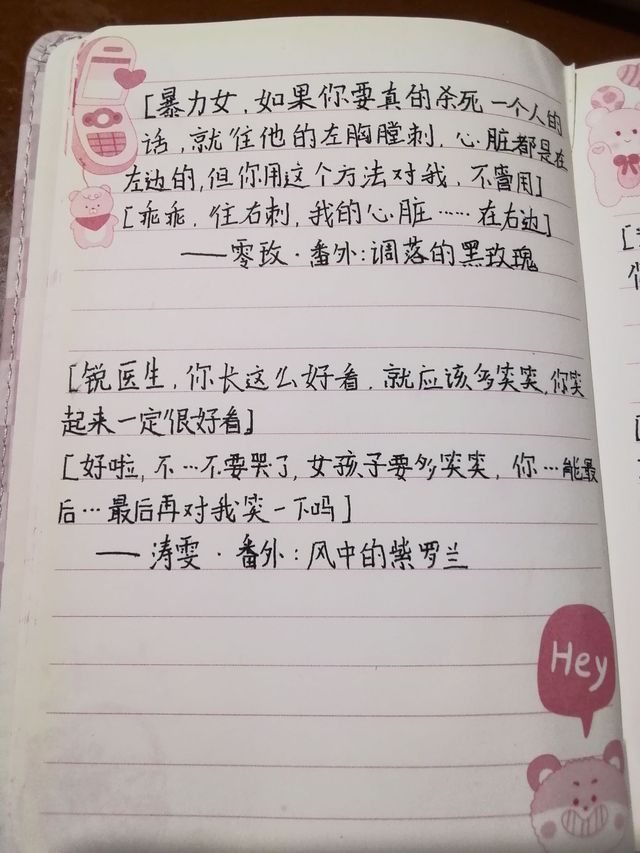 [暴力女，如果你要真的杀死一个人的
话，就往他的左胸膛刺，心脏都是在
左边的，但你用这个方法对我，不管用]
[乖乖，往右刺，我的心脏……在右边]
——零玫·番外：凋落的黑玫瑰
[锐医生，你长这么好看，就应该多笑笑，你笑
起来一定很好看]
[好啦，不…不要哭了，女孩子要多笑笑，你…能最
后…最后再对我笑一下吗]
——涛雯·番外：风中的紫罗兰
Hey